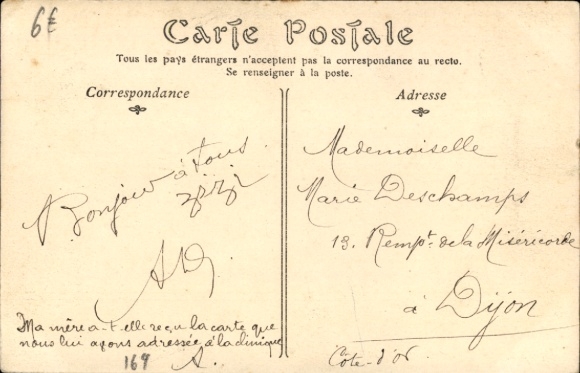 6€
Carte Postale
Tous les pays étrangers n'acceptent pas la correspondance au recto.
Se renseigner à la poste.
Correspondance
Bonjour à tous
Ma mère a-t-elle reçu la carte que
nous lui avons adressée à la clinique
A.
164
Adresse
Mademoiselle
Marie Deschamps
13. Rempt. de la Miséricorde
à Dijon
Côte-d'Or